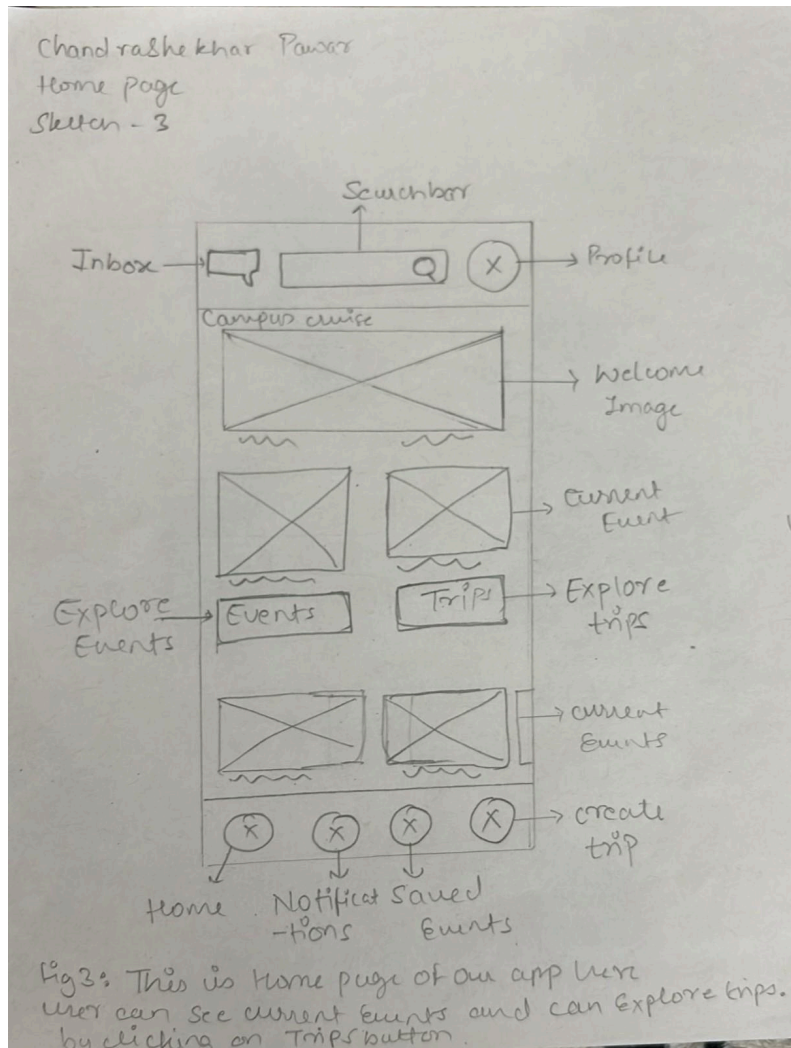 Chandrashekhar Pawar
Home page
Sketch - 3
Searchbar
Inbox
Profile
Campus cruise
Welcome
Image
Current
Event
Events
Trips
Explore
Events
Explore
trips
current
Events
create
trip
Home
Notificat
-tions
Saved
Events
Fig 3: This is Home page of our app here
user can see current Events and can Explore trips.
by clicking on Trips button.